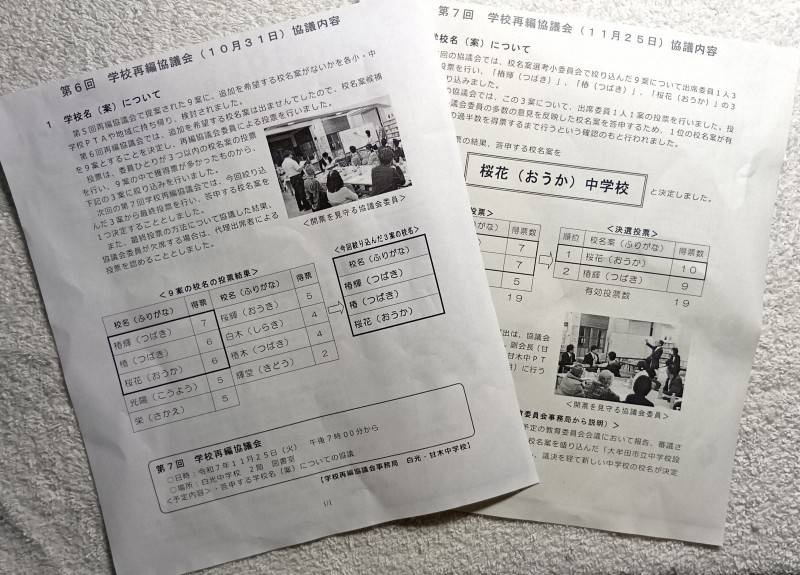 第6回 学校再編協議会（10月31日）協議内容
1 学校名（案）について
第5回再編協議会で提案された9案に、追加を希望する校名案がないかを各小・中
学校PTAや地域に持ち帰り、検討されました。
第6回再編協議会では、追加を希望する校名案は出ませんでしたので、校名案候補
を9案とすることを決定し、再編協議会委員による投票を行いました。
投票は、委員ひとりが3つ以内の校名案の投票
を行い、9案の中で獲得票が多かったものから、
下記の3案に絞り込みを行いました。
次回の第7回学校再編協議会では、今回絞り込
んだ3案から最終投票を行い、答申する校名案を
1つ決定することとしました。
また、最終投票の方法について協議した結果、
協議会委員が欠席する場合は、代理出席者による
投票を認めることとしました。
＜開票を見守る協議会委員＞
＜9案の校名の投票結果＞
校名（ふりがな） 得票 校名（ふりがな） 得票
椿輝（つばき） 7 桜輝（おうき） 5
椿（つばき） 6 白木（しらき） 4
桜花（おうか） 6 椿木（つばき） 4
光陽（こうよう） 5 輝堂（きどう） 2
栄（さかえ） 5
＜今回絞り込んだ3案の校名＞
校名（ふりがな）
椿輝（つばき）
椿（つばき）
桜花（おうか）
第7回 学校再編協議会
○日時：令和7年11月25日（火） 午後7時00分から
○場所：白光中学校 2階 図書室
＜予定内容＞・答申する学校名（案）についての協議
【学校再編協議会事務局 白光・甘木中学校】
1/1
第7回 学校再編協議会（11月25日）協議内容
校名（案）について
回の協議会では、校名案選考小委員会で絞り込んだ9案について出席委員1人3
投票を行い、「椿輝（つばき）」、「椿（つばき）」、「桜花（おうか）」の3
り込みました。
協議会では、この3案について、出席委員1人1案の投票を行いました。投
議会委員の多数の意見を反映した校名案を答申するため、1位の校名案が有
の過半数を得票するまで行うという確認のもと行われました。
票の結果、答申する校名案を
桜花（おうか）中学校
と決定しました。
投票＞
得票数
7
7
5
19
＜決選投票＞
順位 校名案（ふりがな） 得票数
1 桜花（おうか） 10
2 椿輝（つばき） 9
有効投票数 19
出は、協議会
副会長（甘
甘木中PT
）に行う
＜開票を見守る協議会委員＞
委員会事務局から説明）＞
予定の教育委員会会議において報告、審議さ
校名案を盛り込んだ「大牟田市立中学校設
、議決を経て新しい中学校の校名が決定